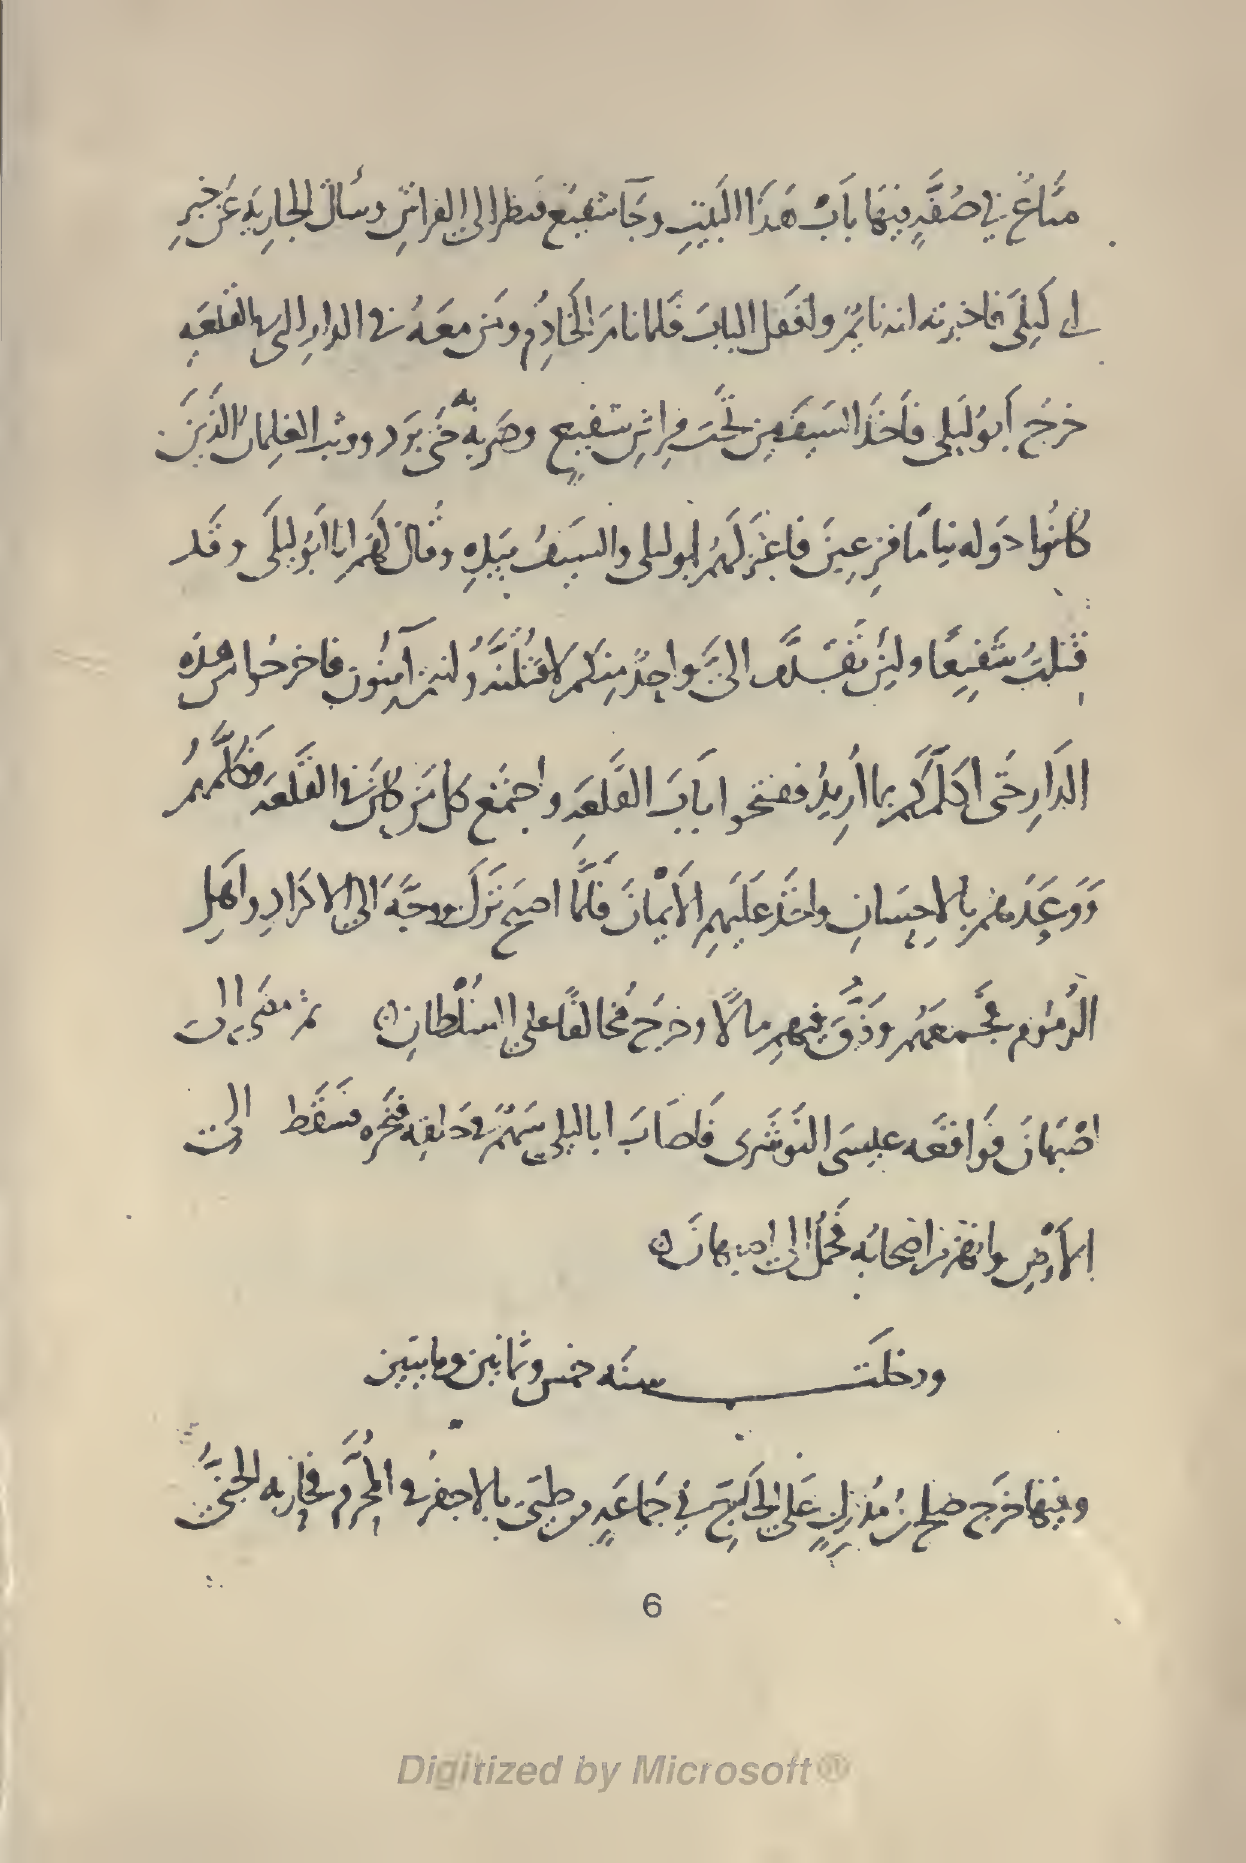 متاعٌ في صُفَّةٍ فيهَا بَابُ هَذَا البَيتِ وجَآ شفيعٌ فنظر الى الفراشِ وسَأل الجاريةِ عَن خبرِ
ابي لَيلَى فاخبرته انه نائمٌ وقفل البابَ فلمَا نامَ الخَادِمُ ومَن معَهُ في الدارِ التي بالقلعَه
خرجَ أبو لَيلى فأَخذَ السَيفَ مِن تَحتَ فراشِ شفيعٍ وضَربهُ به حَتى بَرَد ووثب الغلمانُ الذينَ
كانُوا حَوله نيامًا فزعِينَ فاعتزلَهمُ ابو ليلى والسَيفُ بيَدِهِ وقال لَهَم انا ابَوُ ليلَى وقَد
قتلتُ شَفيعًا ولئِن تَقَدَّم اليَّ وَاحِدٌ منكم لاقتُلَنَّهُ وانتم آمنُون فاخرجُوا من هذه
الدَارِ حَتى اكَلّمَكُم بما أُريدُ ففتحوا بَابَ القَلعَهِ واجتمَع كل مَن كانَ في القلعَه فكلَّمهمُ
وَوعَدَهم بالاحِسَانِ واخَذ عَلَيهمِ الأيْمانَ فلَمَّا اصبحَ نَزَل ووجَّهَ الى الاكرَادِ واهلِ
الزمُوم فجَمعَهُم وفَرَّقَ فيهمِ مالًا وخرجَ مُخالفًا على السُلْطانِ ثم مضَى الى
اصْبَهانَ فوَاقعَه عيسَى النَوشَرى فأصَابَ ابا ليلى سَهمٌ في حَلقِه فنحَره فسَقَط الى
الأرْضِ وانهَزمَ اصْحابُه فحُمل الى اصبهانَ
ودخلَت سنَه خمس وثمانين ومايتين
وفيهَا خرَج صلح بنُ مُدركٍ عَلى الحَاجِّ في جَماعَهٍ من طيّئ بالاجفُر في المُحرَّمِ فحَارَبه الجنّيُّ
6
Digitized by Microsoft®